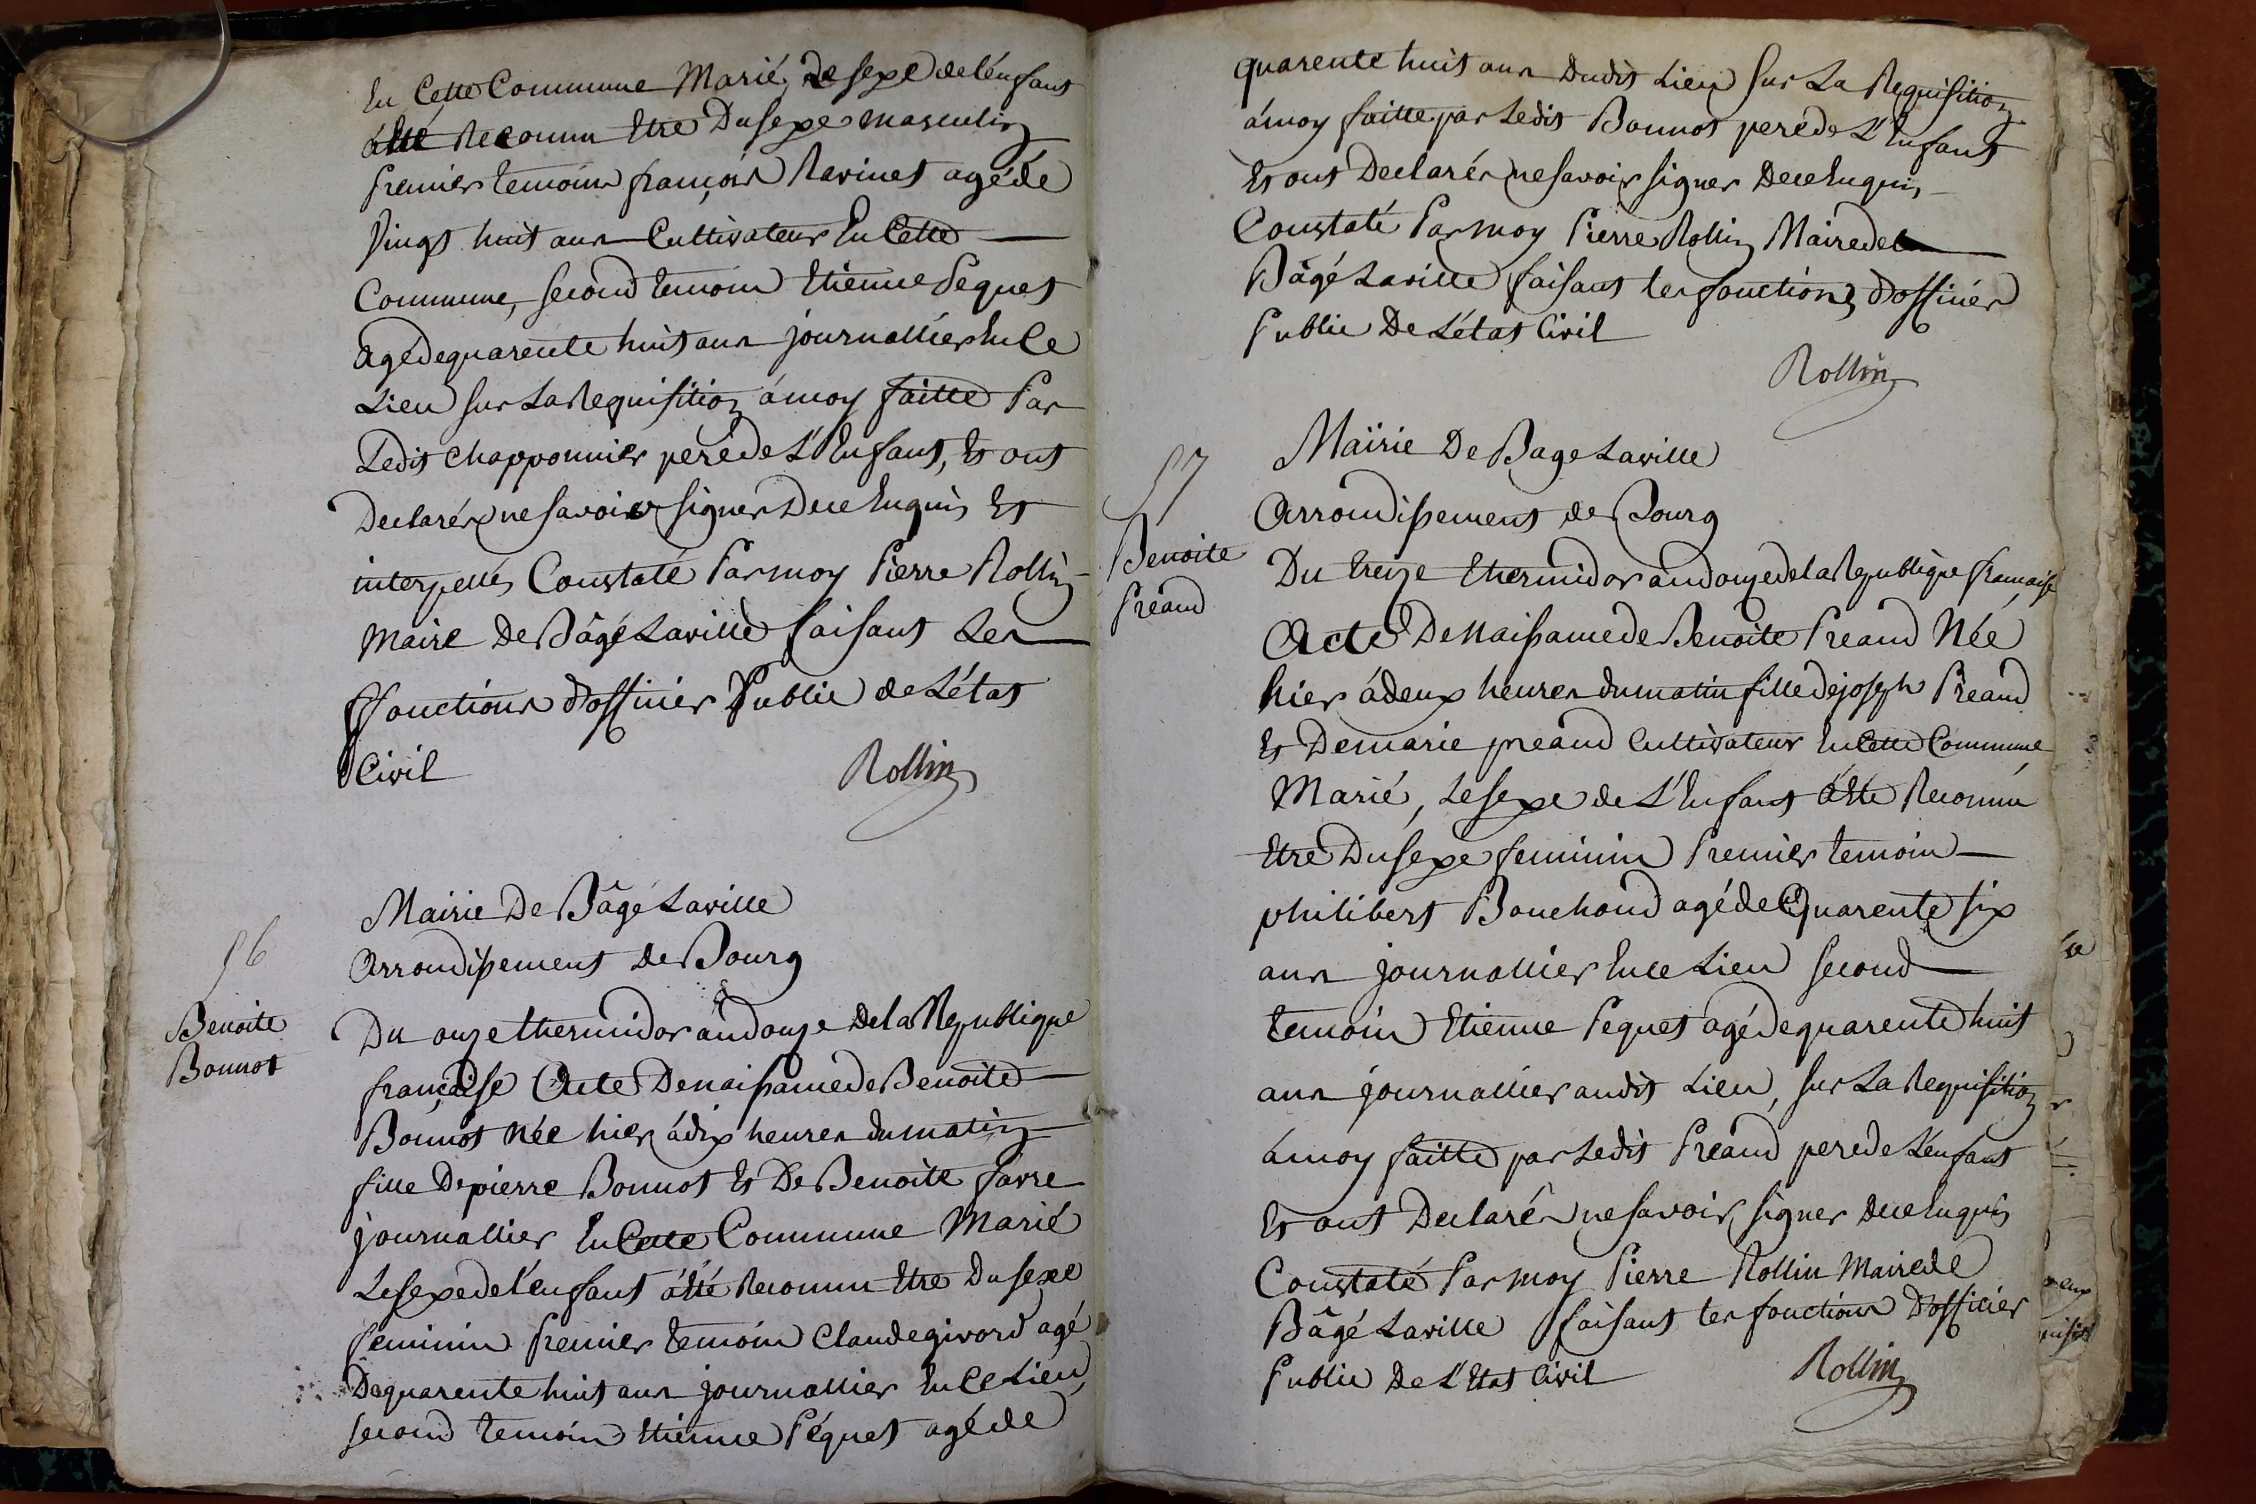 En Cette Commune Marié, Le sexe de lénfant
áèté Reconnu Etre Du sexe masculin
Premier temoin françois Ravinet agé de
Vingt huit ans Cultivateur En Cette
Commune, second temoin Etienne Pequet
agé de quarente huit ans journallier En Ce
Lieu sur La Requisition ámoy faitte Par
Ledit Chapponnier pere de L'Enfant, Et ont
Declarér ne savoir signer De ce Enquis Et
interpellés Constaté Par moy Pierre Rollin
Maire De Bâgé Laville faisant Les
ffonctions d'officier Public de L'état
Civil
Rollin
Mairie De Bâgé Laville
Arrondissement De Bourg
56
Benoite
Bonnot
Du onze thermidor an douze De la Republique
française Acte De naissance de Benoite
Bonnot Née hier á dix heures du matin
fille De pierre Bonnot Et De Benoite favre
journallier En Cette Commune Marié
Le sexe de l'enfant áèté Reconnu Etre Du sexe
feminin Premier temoin Claude givord agé
De quarente huit ans journallier En Ce Lieu,
second temoin Etienne Péquet agé de
quarente huit ans Dudit Lieu sur La Requisition
ámoy faitte par Ledit Bonnot pere de L'Enfant
Et ont Declarér ne savoir signer De ce Enquis
Constaté Par moy Pierre Rollin Maire de
Bâgé Laville faisant les fonctions d'officier
Public De L'état Civil
Rollin
57
Benoite
Preaud
Maïrie De Bage Laville
Arrondissement de Bourg
Du treize thermidor an douze de la Republique française
Acte De naissance de Benoite Preaud Née
hier á deux heures du matin fille de joseph Preaud
Et De marie preaud Cultivateur En Cette Commune
Marié, Le sexe de L'Enfant áèté Reconnu
Etre Du sexe feminin Premier temoin
philibert Bouchoud agé de Quarente six
ans journallier En ce Lieu second
temoin Etienne Pequet agé de quarente huit
ans journallier audit Lieu, sur La Requisition
ámoy faitte par Ledit Preaud pere de L'enfant
Et ont Declarér ne savoir signer De ce Enquis
Constaté Par moy Pierre Rollin Maire de
Bâgé Laville faisant les fonctions D'officier
Public De L'Etat Civil
Rollin